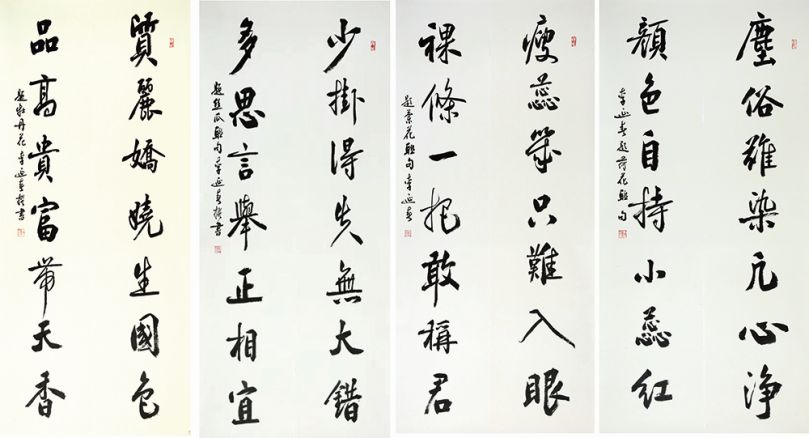 塵俗難染凡心净
顏色自持小蕊紅
李延春題荷花聯句
瘦蕊幾只難入眼
裸條一把敢稱君
題花聯句 李延春
少掛得失無大錯
多思言舉正相宜
題絲瓜聯句 李延春撰書
質麗嬌嬈生國色
品高貴富帶天香
題牡丹花 李延春撰書